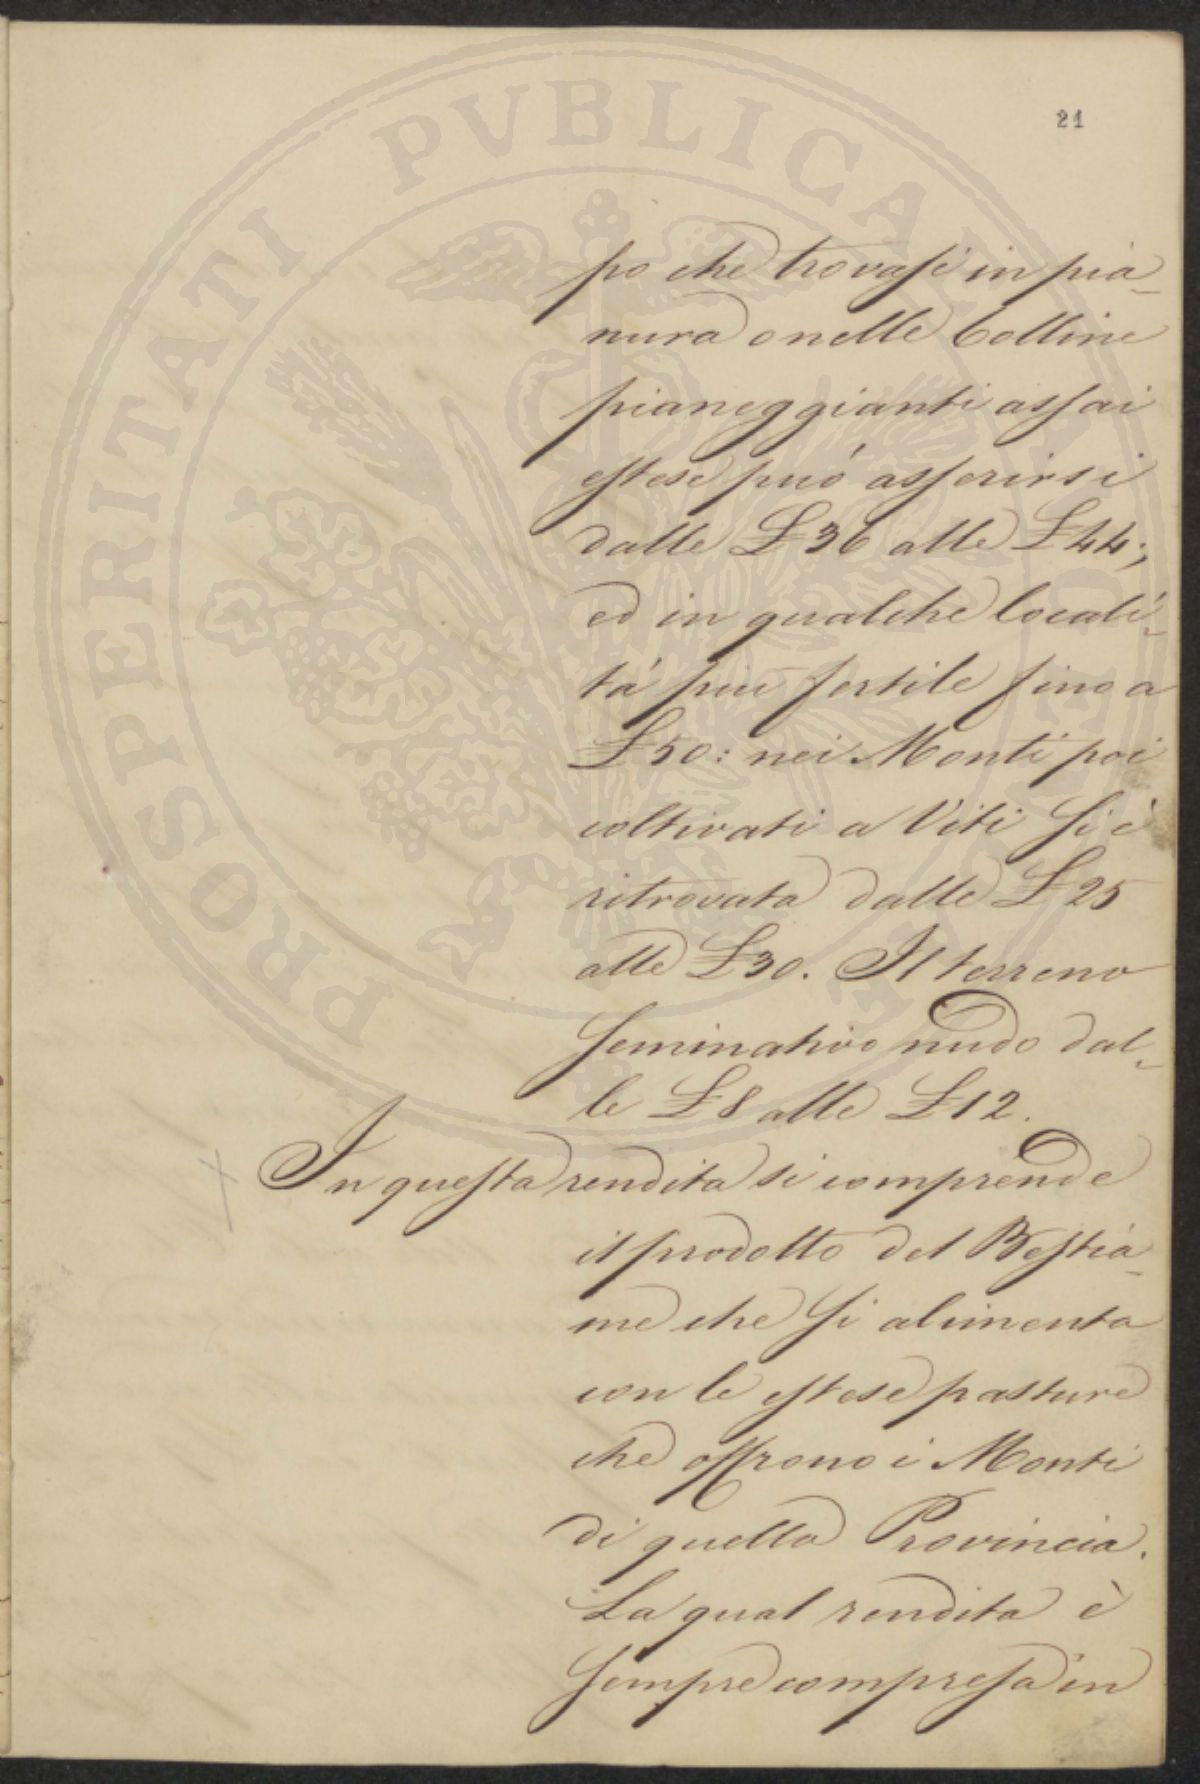 21
po che trovasi in pia-
nura o nelle Colline
pianeggianti assai
estese può asserirsi
dalle £ 36 alle £ 44;
ed in qualche locali-
tá più fertile fino a
£ 50: nei Monti poi
coltivati a Viti si è
ritrovata dalle £ 25
alle £ 30. Il terreno
seminativo nudo dal-
le £ 8 alle £ 12.
In questa rendita si comprende
il prodotto del Bestia-
me che si alimenta
con le estese pasture
che offrono i Monti
di quella Provincia.
La qual rendita è
sempre compresa in
PROSPERITATI PVBLICAE